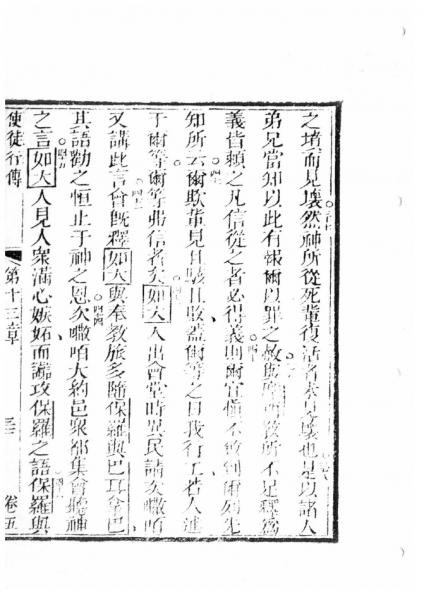 之墳而見壞然神所從死輩復活者未見壞也是以諸人
弟兄當知以此有報爾以罪之赦與 所不足釋為
義皆賴之凡信從之者必得義則爾宜慎不致到爾如先
知所云爾欺輩見且駭且敗蓋爾等之日我行工若人述
于爾等爾等弗信者次如大人出會堂時異民請次嗷咟
又講此言會既釋如大與奉教旅多隨保羅與巴耳拿巴
其語勸之恒止于神之恩次嗷咟大約邑眾都集會聽神
之言如大人見人眾滿心嫉妬而讒攻保羅之語保羅與
使徒行傳 第十三章 三 卷五